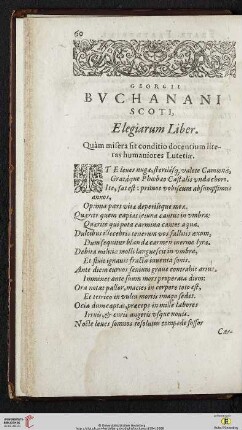 60
GEORGII
BVCHANANI
SCOTI,
Elegiarum Liber.
Quàm misera sit conditio docentium lite-
ras humaniores Lutetiæ.
ITE leues nugæ, sterilesq́; valete Camœnæ,
Grataq́ue Phœbæo Castalis unda choro.
Ite, sat est: primos vobiscum absumpsimus
annos,
Optima pars vitæ deperiitque meæ.
Quærite quem capiat ieiuna cantus in vmbra:
Quærite qui pota carmina cantet aqua.
Dulcibus illecebris tenerum vos fallitis æuum,
Dum sequitur blandæ carmen inerme lyræ.
Debita militiæ molli languescit in vmbra,
Et fluit ignauis fracta iuuenta sonis.
Ante diem curuos senium grave contrahit artus,
Imminet ante suum mors properata diem:
Ora notat pallor, macies in corpore toto est,
Et tetrico in vultu mortis imago sedet.
Otia dum captas, præceps in mille labores
Irruis, & curis angeris vsque nouis.
Nocte leues somnos resolutus compede fossor
Car-